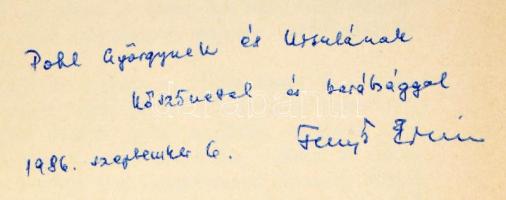 Pohl Györgynek és Ursulának
köszönettel és barátsággal
1986. szeptember 6. Fenyő Ervin